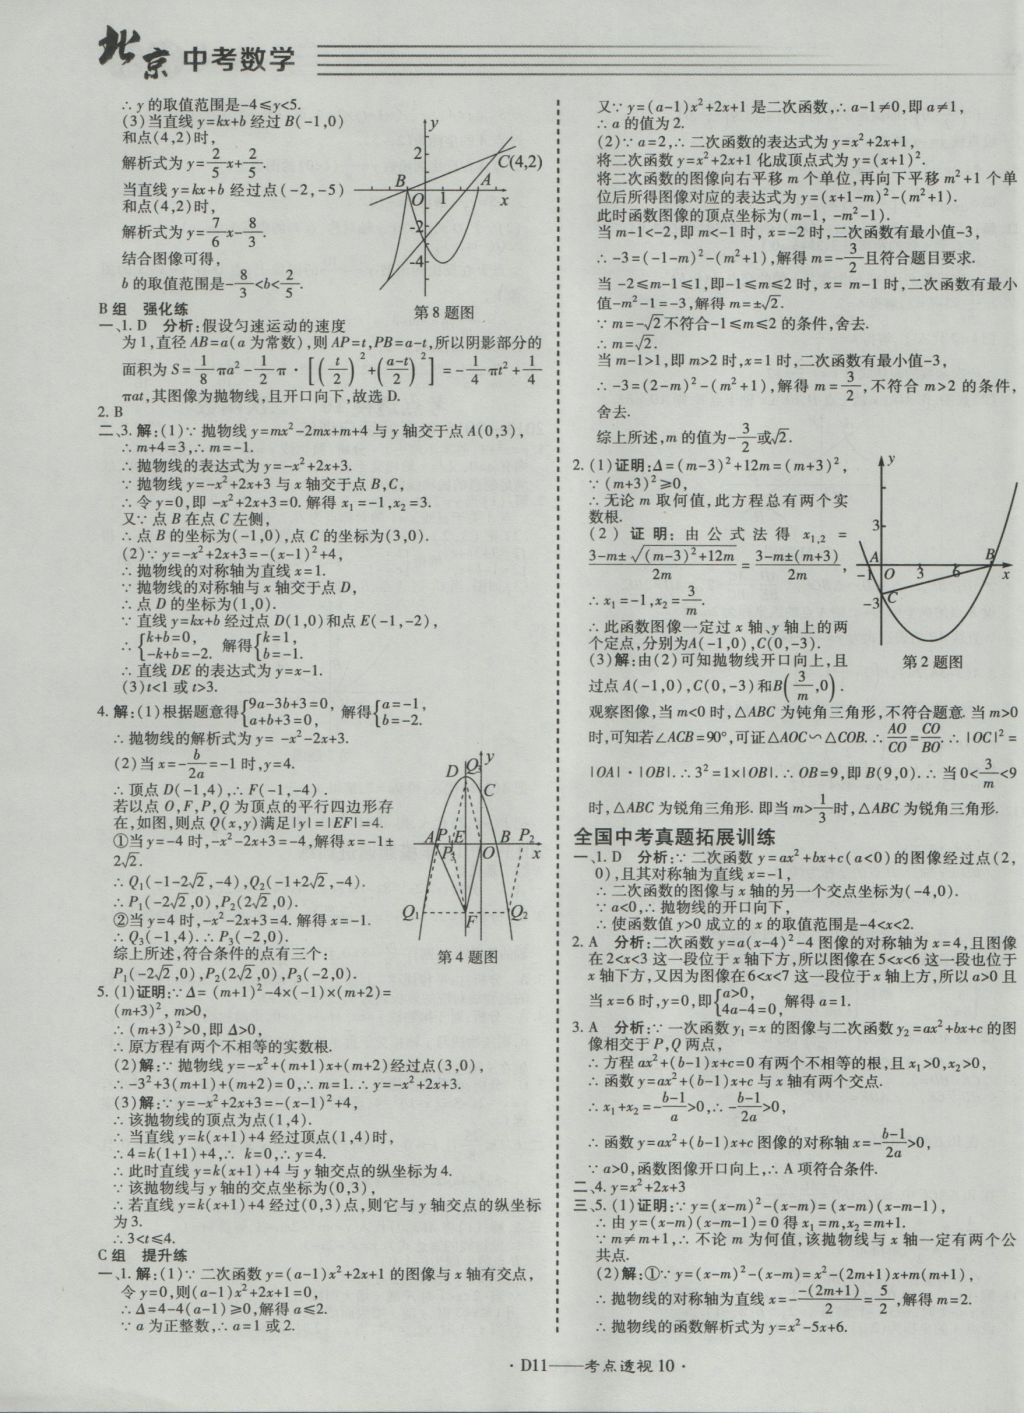 北京中考数学
∴y的取值范围是-4≤y<5.
(3)当直线y=kx+b经过B(-1,0)
和点(4,2)时,
解析式为y=2/5x+2/5.
当直线y=kx+b经过点(-2,-5)
和点(4,2)时,
解析式为y=7/6x-8/3.
结合图像可得,
b的取值范围是-8/3<b<2/5.
y
2
C(4,2)
B
A
O 1 x
-2
-4
第8题图
B组 强化练
一、1. D 分析:假设匀速运动的速度
为1,直径AB=a(a为常数),则AP=t,PB=a-t,所以阴影部分的
面积为S=1/8πa²-1/2π·[(t/2)²+((a-t)/2)²]=-1/4πt²+1/4
πat,其图像为抛物线,且开口向下,故选D.
2. B
二、3. 解:(1)∵抛物线y=mx²-2mx+m+4与y轴交于点A(0,3),
∴m+4=3,∴m=-1.
∴抛物线的表达式为y=-x²+2x+3.
∵抛物线y=-x²+2x+3与x轴交于点B,C,
∴令y=0,即-x²+2x+3=0.解得x₁=-1,x₂=3.
又∵点B在点C左侧,
∴点B的坐标为(-1,0),点C的坐标为(3,0).
(2)∵y=-x²+2x+3=-(x-1)²+4,
∴抛物线的对称轴为直线x=1.
∵抛物线的对称轴与x轴交于点D,
∴点D的坐标为(1,0).
∵直线y=kx+b经过点D(1,0)和点E(-1,-2),
∴{k+b=0, -k+b=-2. 解得{k=1, b=-1.
∴直线DE的表达式为y=x-1.
(3)t<1或t>3.
4. 解:(1)根据题意得{9a-3b+3=0, a+b+3=0, 解得{a=-1, b=-2.
∴抛物线的解析式为y=-x²-2x+3.
(2)当x=-b/2a=-1时,y=4.
∴顶点D(-1,4),∴F(-1,-4).
若以点O,F,P,Q为顶点的平行四边形存
在,如图,则点Q(x,y)满足|y|=|EF|=4.
①当y=-4时,-x²-2x+3=-4,解得x=-1±
2√2.
∴Q₁(-1-2√2,-4),Q₂(-1+2√2,-4).
∴P₁(-2√2,0),P₂(2√2,0).
②当y=4时,-x²-2x+3=4.解得x=-1.
∴Q₃(-1,4).∴P₃(-2,0).
综上所述,符合条件的点有三个:
P₁(-2√2,0),P₂(2√2,0),P₃(-2,0).
D Q₃ y
C
A P₁ E B P₂
P₃ O x
Q₁ F Q₂
第4题图
5. (1)证明:∵Δ=(m+1)²-4×(-1)×(m+2)=
(m+3)²,m>0,
∴(m+3)²>0,即Δ>0,
∴原方程有两个不相等的实数根.
(2)解:∵抛物线y=-x²+(m+1)x+(m+2)经过点(3,0),
∴-3²+3(m+1)+(m+2)=0,∴m=1.∴y=-x²+2x+3.
(3)解:∵y=-x²+2x+3=-(x-1)²+4,
∴该抛物线的顶点为点(1,4).
∴当直线y=k(x+1)+4经过顶点(1,4)时,
∴4=k(1+1)+4,∴k=0,∴y=4.
∴此时直线y=k(x+1)+4与y轴交点的纵坐标为4.
∵该抛物线与y轴的交点坐标为(0,3),
∴若直线y=k(x+1)+4经过(0,3)点,则它与y轴交点的纵坐标
为3.
∴3<t≤4.
C组 提升练
一、1. 解:(1)∵二次函数y=(a-1)x²+2x+1的图像与x轴有交点,
令y=0,则(a-1)x²+2x+1=0,
∴Δ=4-4(a-1)≥0,解得a≤2.
∵a为正整数,∴a=1或2.
又∵y=(a-1)x²+2x+1是二次函数,∴a-1≠0,即a≠1,
∴a的值为2.
(2)∵a=2,∴二次函数的表达式为y=x²+2x+1,
将二次函数y=x²+2x+1化成顶点式为y=(x+1)².
将二次函数的图像向右平移m个单位,再向下平移m²+1个单
位后所得图像对应的表达式为y=(x+1-m)²-(m²+1).
此时函数图像的顶点坐标为(m-1,-m²-1).
当m-1<-2,即m<-1时,x=-2时,二次函数有最小值-3,
∴-3=(-1-m)²-(m²+1),解得m=-3/2且符合题目要求.
当-2≤m-1≤1,即-1≤m≤2时,x=m-1时,二次函数有最小
值-m²-1=-3,解得m=±√2.
∵m=-√2不符合-1≤m≤2的条件,舍去.
∴m=√2.
当m-1>1,即m>2时,x=1时,二次函数有最小值-3,
∴-3=(2-m)²-(m²+1),解得m=3/2,不符合m>2的条件,
舍去.
综上所述,m的值为-3/2或√2.
2. (1)证明:Δ=(m-3)²+12m=(m+3)²,
∵(m+3)²≥0,
∴无论m取何值,此方程总有两个实
数根.
(2)证明:由公式法得x₁,₂=
(3-m±√((m-3)²+12m))/2m=(3-m±(m+3))/2m,
∴x₁=-1,x₂=3/m.
∴此函数图像一定过x轴、y轴上的两
个定点,分别为A(-1,0),C(0,-3).
(3)解:由(2)可知抛物线开口向上,且
过点A(-1,0),C(0,-3)和B(3/m,0).
y
3
A B
-1 O 3 6 x
-3 C
第2题图
观察图像,当m<0时,△ABC为钝角三角形,不符合题意.当m>0
时,可知若∠ACB=90°,可证△AOC∽△COB.∴AO/CO=CO/BO.∴|OC|²=
|OA|·|OB|.∴3²=1×|OB|.∴OB=9,即B(9,0).∴当0<3/m<9
时,△ABC为锐角三角形.即当m>1/3时,△ABC为锐角三角形.
全国中考真题拓展训练
一、1. D 分析:∵二次函数y=ax²+bx+c(a<0)的图像经过点(2,
0),且其对称轴为直线x=-1,
∴二次函数的图像与x轴的另一个交点坐标为(-4,0).
∵a<0,∴抛物线的开口向下,
∴使函数值y>0成立的x的取值范围是-4<x<2.
2. A 分析:二次函数y=a(x-4)²-4图像的对称轴为x=4,且图像
在2<x<3这一段位于x轴下方,所以图像在5<x<6这一段也位于
x轴下方,又因为图像在6<x<7这一段位于x轴上方,所以a>0且
当x=6时,y=0,即{a>0, 4a-4=0, 解得a=1.
3. A 分析:∵一次函数y₁=x的图像与二次函数y₂=ax²+bx+c的图
像相交于P,Q两点,
∴方程ax²+(b-1)x+c=0有两个不相等的根,且x₁>0,x₂>0,
∴函数y=ax²+(b-1)x+c与x轴有两个交点.
∴x₁+x₂=-(b-1)/a>0,∴-(b-1)/2a>0,
∴函数y=ax²+(b-1)x+c图像的对称轴x=-(b-1)/2a>0,
∵a>0,函数图像开口向上,∴A项符合条件.
二、4. y=x²+2x+3
三、5. (1)证明:∵y=(x-m)²-(x-m)=(x-m)(x-m-1),
∴由y=(x-m)(x-m-1)=0得x₁=m,x₂=m+1.
∵m≠m+1,∴不论m为何值,该抛物线与x轴一定有两个公
共点.
(2)解:①∵y=(x-m)²-(x-m)=x²-(2m+1)x+m(m+1),
∴抛物线的对称轴为直线x=-(-(2m+1))/2=5/2,解得m=2.
∴抛物线的函数解析式为y=x²-5x+6.
·D11——考点透视10·